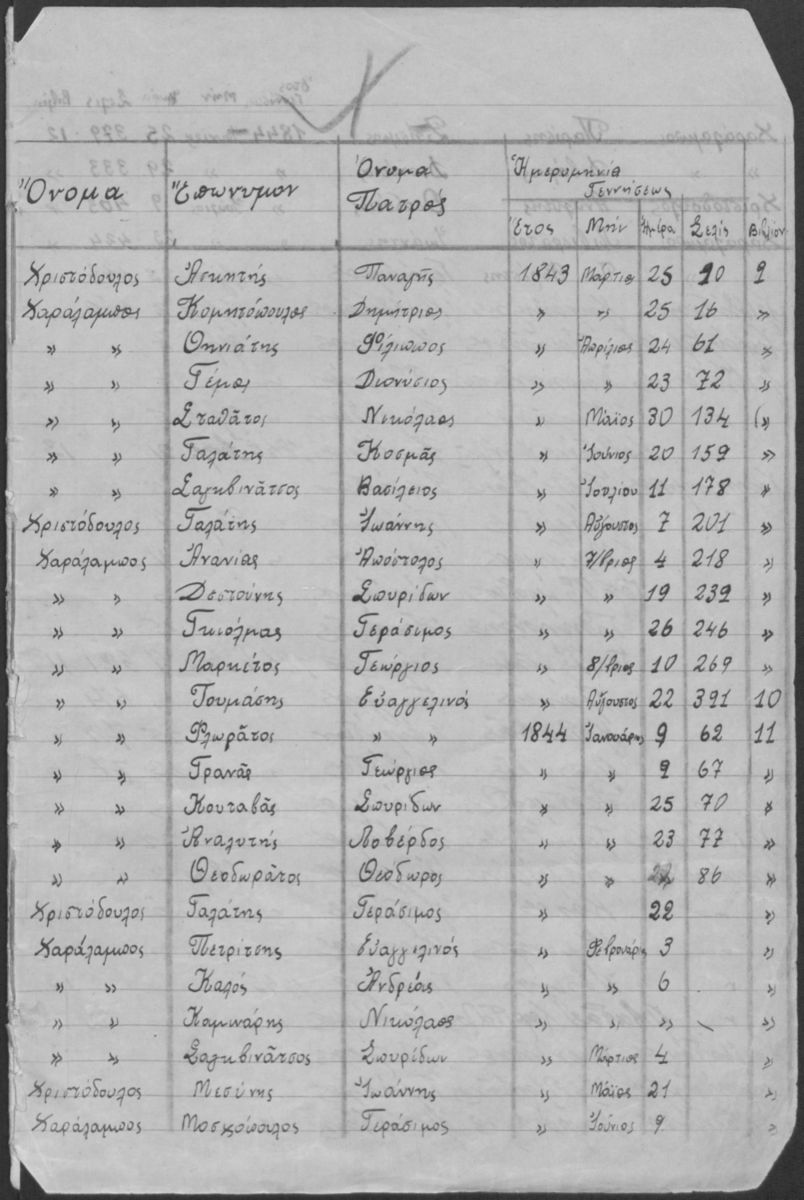 Χ
Ὄνομα Ἐπώνυμον Ὄνομα Πατρός Ἡμερομηνία Γεννήσεως
Ἔτος Μήν Ἡμέρα Σελίς Βιβλίον
Χριστόδουλος Ἀσκητής Παναγῆς 1843 Μάρτιος 25 10 9
Χαράλαμπος Κομητόπουλος Δημήτριος » » 25 16 »
» » Θηνιάτης Φίλιππος » Ἀπρίλιος 24 61 »
» » Γέμος Διονύσιος » » 23 72 »
» » Σταθᾶτος Νικόλαος » Μάϊος 30 134 »
» » Γαλάτης Κοσμᾶς » Ἰούνιος 20 159 »
» » Σαγκβινᾶτσος Βασίλειος » Ἰουλίου 11 178 »
Χριστόδουλος Γαλάτης Ἰωάννης » Αὔγουστος 7 201 »
Χαράλαμπος Ἀνανίας Ἀπόστολος » 7/βριος 4 218 »
» » Δεστούνης Σπυρίδων » » 19 239 »
» » Γκιόλμας Γεράσιμος » » 26 246 »
» » Μαρκέτος Γεώργιος » 8/βριος 10 269 »
» » Τουμάσης Εὐαγγελινός » Αὔγουστος 22 391 10
» » Φλωρᾶτος » » 1844 Ἰανουάρης 9 62 11
» » Γρανᾶς Γεώργιος » » 9 67 »
» » Κουταβᾶς Σπυρίδων » » 25 70 »
» » Ἀναλυτής Λοβέρδος » » 23 77 »
» » Θεοδωρᾶτος Θεόδωρος » » 86 »
Χριστόδουλος Γαλάτης Γεράσιμος » 22 »
Χαράλαμπος Πετρίτσης Εὐαγγελινός » Φεβρουάρις 3 »
» » Καλός Ἀνδρέας » » 6 »
» » Καμινάρης Νικόλαος » » » »
» » Σαγκβινᾶτσος Σπυρίδων » Μάρτιος 4 »
Χριστόδουλος Μεσύνης Ἰωάννης » Μάϊος 21 »
Χαράλαμπος Μοσχόπουλος Γεράσιμος » Ἰούνιος 9 »